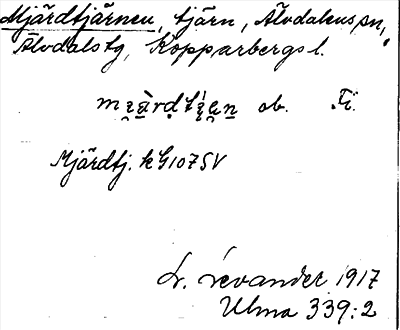 Mjärdtjärnen, tjärn, Älvdalens sn,
Älvdals tg, Kopparbergs l.
ob. Fi.
Mjärdtj. k G107SV
Levander 1917
Ulma 339:2